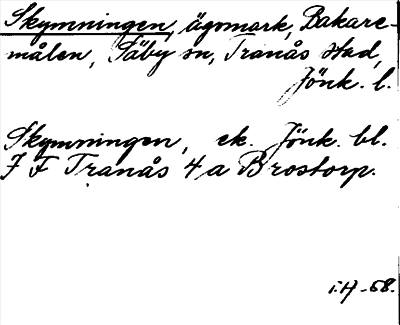 Skymningen, ägomark, Bakare-
målen, Säby sn, Tranås stad,
Jönk. l.
Skymningen, ek. Jönk. bl.
7 F Tranås 4 a Brostorp.
I.H-68.